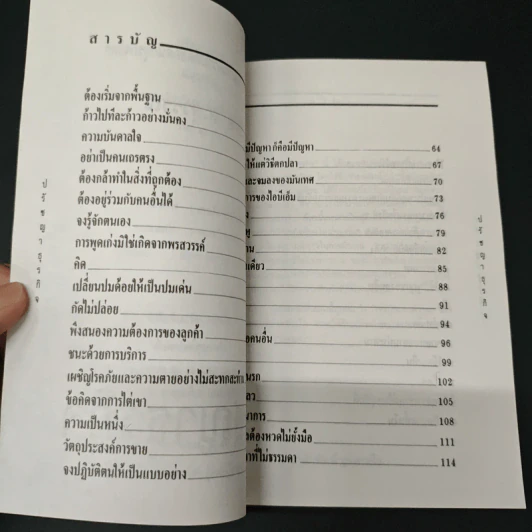 สารบัญ
ต้องเริ่มจากพื้นฐาน
ก้าวไปทีละก้าวอย่างมั่นคง
ความบันดาลใจ
อย่าเป็นคนเถรตรง
ต้องกล้าทำในสิ่งที่ถูกต้อง
ต้องอยู่ร่วมกับคนอื่นได้
จงรู้จักตนเอง
การพูดเก่งมิใช่เกิดจากพรสวรรค์
คิด
เปลี่ยนปมด้อยให้เป็นปมเด่น
กัดไม่ปล่อย
พึงสนองความต้องการของลูกค้า
ชนะด้วยการบริการ
เผชิญโรคภัยและความตายอย่างไม่สะทกสะท้าน
ข้อคิดจากการไต่เขา
ความเป็นหนึ่ง
วัตถุประสงค์การขาย
จงปฏิบัติตนให้เป็นแบบอย่าง
ปรัชญาธุรกิจ
มีปัญหาก็คือมีปัญหา 64
ให้แต่วิธีตกปลา 67
และจมลงของมันเทศ 70
การของไอบีเอ็ม 73
76
79
82
เดียว 85
88
91
94
อคนอื่น 96
99
นรก 102
105
นาการ 108
ต้องหวดไม่ยั้งมือ 111
าที่ไม่ธรรมดา 114
ปรัชญาธุรกิจ